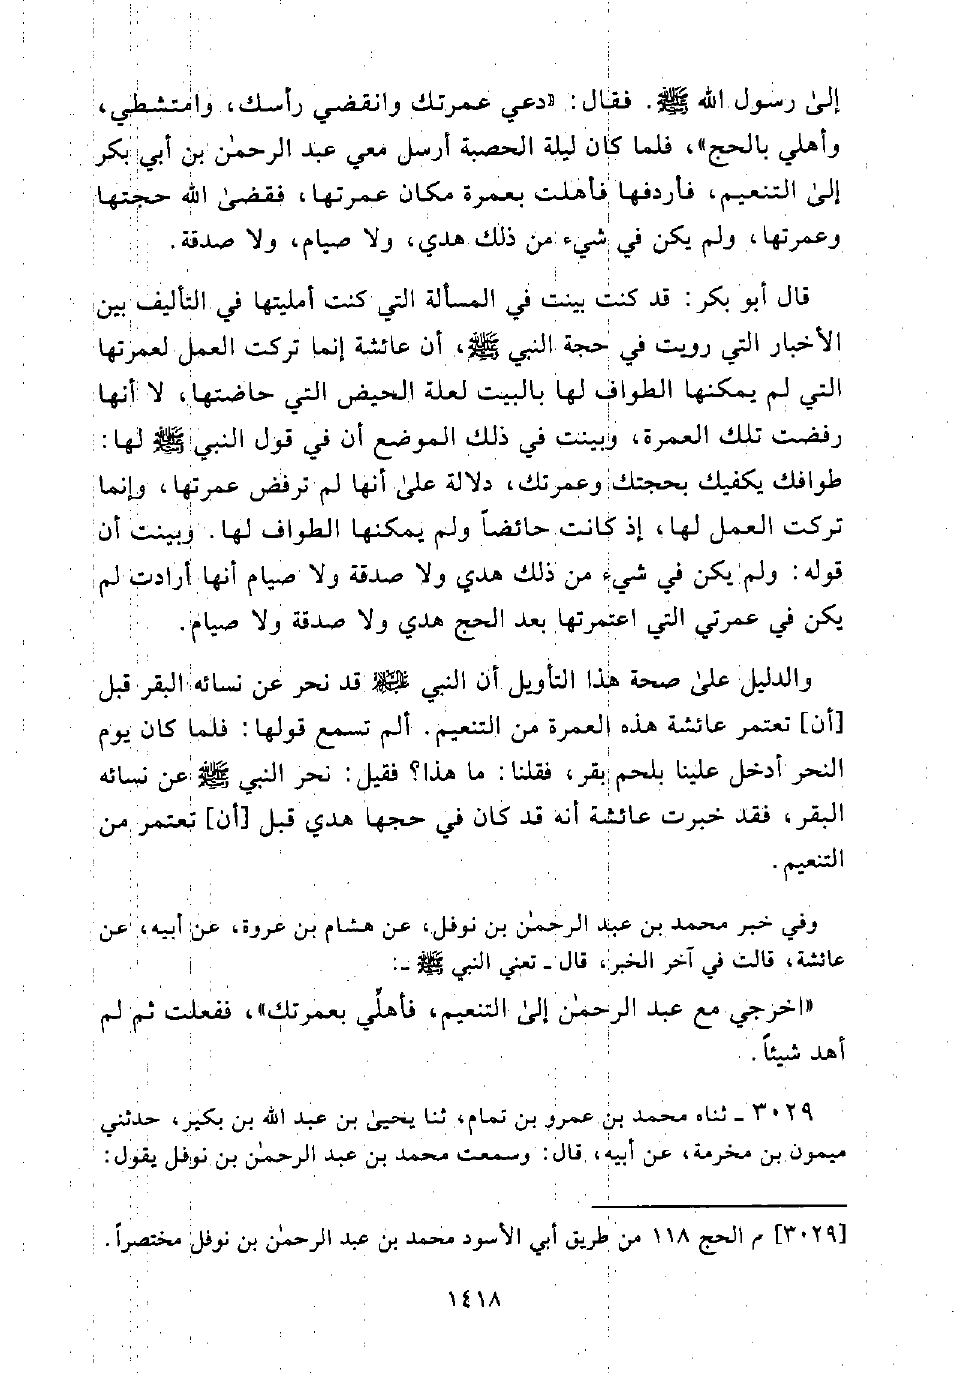 إلىٰ رسول الله ﷺ. فقال: «دعي عمرتك وانقضي رأسك، وامتشطي،
وأهلي بالحج»، فلما كان ليلة الحصبة أرسل معي عبد الرحمٰن بن أبي بكر
إلىٰ التنعيم، فأردفها فأهلت بعمرة مكان عمرتها، فقضىٰ الله حجتها
وعمرتها، ولم يكن في شيء من ذلك هدي، ولا صيام، ولا صدقة.
قال أبو بكر: قد كنت بينت في المسألة التي كنت أمليتها في التأليف بين
الأخبار التي رويت في حجة النبي ﷺ، أن عائشة إنما تركت العمل لعمرتها
التي لم يمكنها الطواف لها بالبيت لعلة الحيض التي حاضتها، لا أنها
رفضت تلك العمرة، وبينت في ذلك الموضع أن في قول النبي ﷺ لها:
طوافك يكفيك بحجتك وعمرتك، دلالة علىٰ أنها لم ترفض عمرتها، وإنما
تركت العمل لها، إذ كانت حائضاً ولم يمكنها الطواف لها. وبينت أن
قوله: ولم يكن في شيء من ذلك هدي ولا صدقة ولا صيام أنها أرادت لم
يكن في عمرتي التي اعتمرتها بعد الحج هدي ولا صدقة ولا صيام.
والدليل علىٰ صحة هذا التأويل أن النبي ﷺ قد نحر عن نسائه البقر قبل
[أن] تعتمر عائشة هذه العمرة من التنعيم. ألم تسمع قولها: فلما كان يوم
النحر أدخل علينا بلحم بقر، فقلنا: ما هذا؟ فقيل: نحر النبي ﷺ عن نسائه
البقر، فقد خبرت عائشة أنه قد كان في حجها هدي قبل [أن] تعتمر من
التنعيم.
وفي خبر محمد بن عبد الرحمٰن بن نوفل، عن هشام بن عروة، عن أبيه، عن
عائشة، قالت في آخر الخبر، قال ـ تعني النبي ﷺ ـ:
«اخرجي مع عبد الرحمٰن إلىٰ التنعيم، فأهلِّي بعمرتك»، ففعلت ثم لم
أهد شيئاً.
٣٠٢٩ ـ ثناه محمد بن عمرو بن تمام، ثنا يحيىٰ بن عبد الله بن بكير، حدثني
ميمون بن مخرمة، عن أبيه، قال: وسمعت محمد بن عبد الرحمٰن بن نوفل يقول:
[٣٠٢٩] م الحج ١١٨ من طريق أبي الأسود محمد بن عبد الرحمٰن بن نوفل مختصراً.
١٤١٨